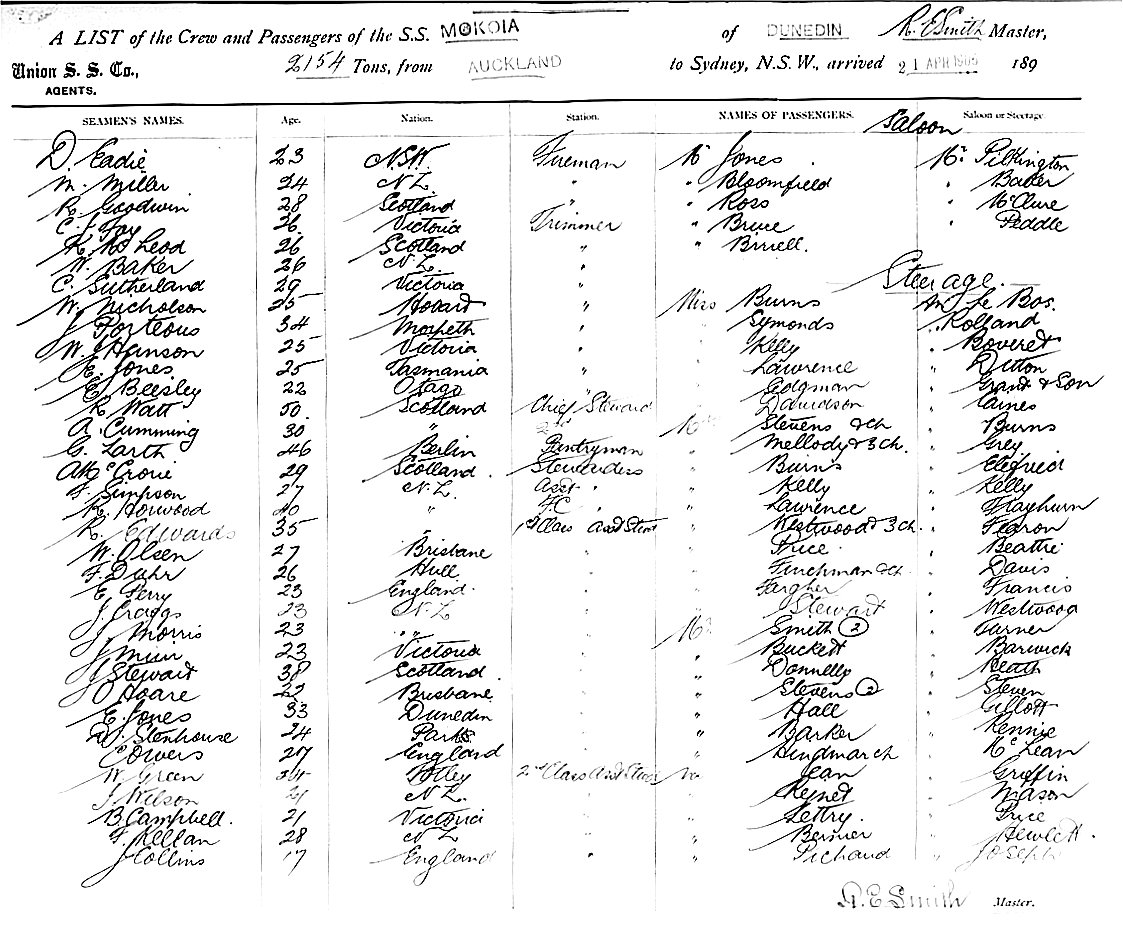 A LIST of the Crew and Passengers of the S.S. MOKOIA of DUNEDIN R. E Smith Master,
Union S. S. Co., 2154 Tons, from AUCKLAND to Sydney, N.S.W., arrived 21 APR 1905 189
AGENTS.
SEAMEN'S NAMES. Age. Nation. Station. NAMES OF PASSENGERS. Saloon Saloon or Steerage
D. Eadie 23 N.S.W. Fireman Mr Jones Mr. Pilkington
M. Miller 24 N.Z. " " Bloomfield " Baker
R. Goodwin 28 Scotland " " Ross " McClure
C. J Fay 26. Victoria Trimmer " Bruce " Peddle
McLeod 26 Scotland " " Birrell.
W. Baker 26 N.Z. "
C. Sutherland 29 Victoria " Steerage.
W. Nicholson 25 Hobart " Miss Burns Le Bos.
J Porteous 34 Morpeth " " Symonds " Rolland
W. J Hanson 25 Victoria " " Kelly " Boveret
E. Jones 25 Tasmania " " Lawrence " Ditton
E. Beesley 22 Otago " " Edgman " Grant & Son
R. Watt 50. Scotland Chief Steward " Davidson " Caines
A. Cumming 30 " 2nd " Mrs Stevens & ch " Burns
G. Larth 46 Berlin Pantryman " Mellody & 3 ch. " Grey
A McCrone 29 Scotland. Stewardess " Burns "
F. Simpson 27 N.Z. Asst " " Kelly " Kelly
R. Horwood 20 " F.C " Lawrence "
R. Edwards 35 " 1st Class Asst Stew " Westwood & 3 ch. " Fearon
W. Olsen 27 Brisbane " " Price " Beattie
F. Duhr 26 Hull " " Finchman & ch. " Davis
E Perry 23 England. " " Fargher " Francis
J. Craggs 23 N.Z. " " Stewart " Westwood
J Morris 23 " " " Mr. Smith (2) " Turner
J Muir 23 Victoria " " Buckett " Barwick
J Stewart 38 Scotland. " " Donnelly " Heath
O Hoare 22 Brisbane " " Stevens (2) " Steven
E. Jones 33 Dunedin " " Hall " Gillott
D. Stenhouse 24 Parks " " Barker " Rennie
C Owers 27 England " " Hindmarch " McLean
W. Green 34 Otley 2nd Class Asst Stew " Jean " Griffin
J. Wilson 21 N.Z. " " Reynet " Mason
B. Campbell. 21 Victoria " " Settry. " Price
F. Kellan 28 N Z " " Bernier " Hewlett.
J Collins 17 England " " Pichaud " Joseph
R. E Smith Master.